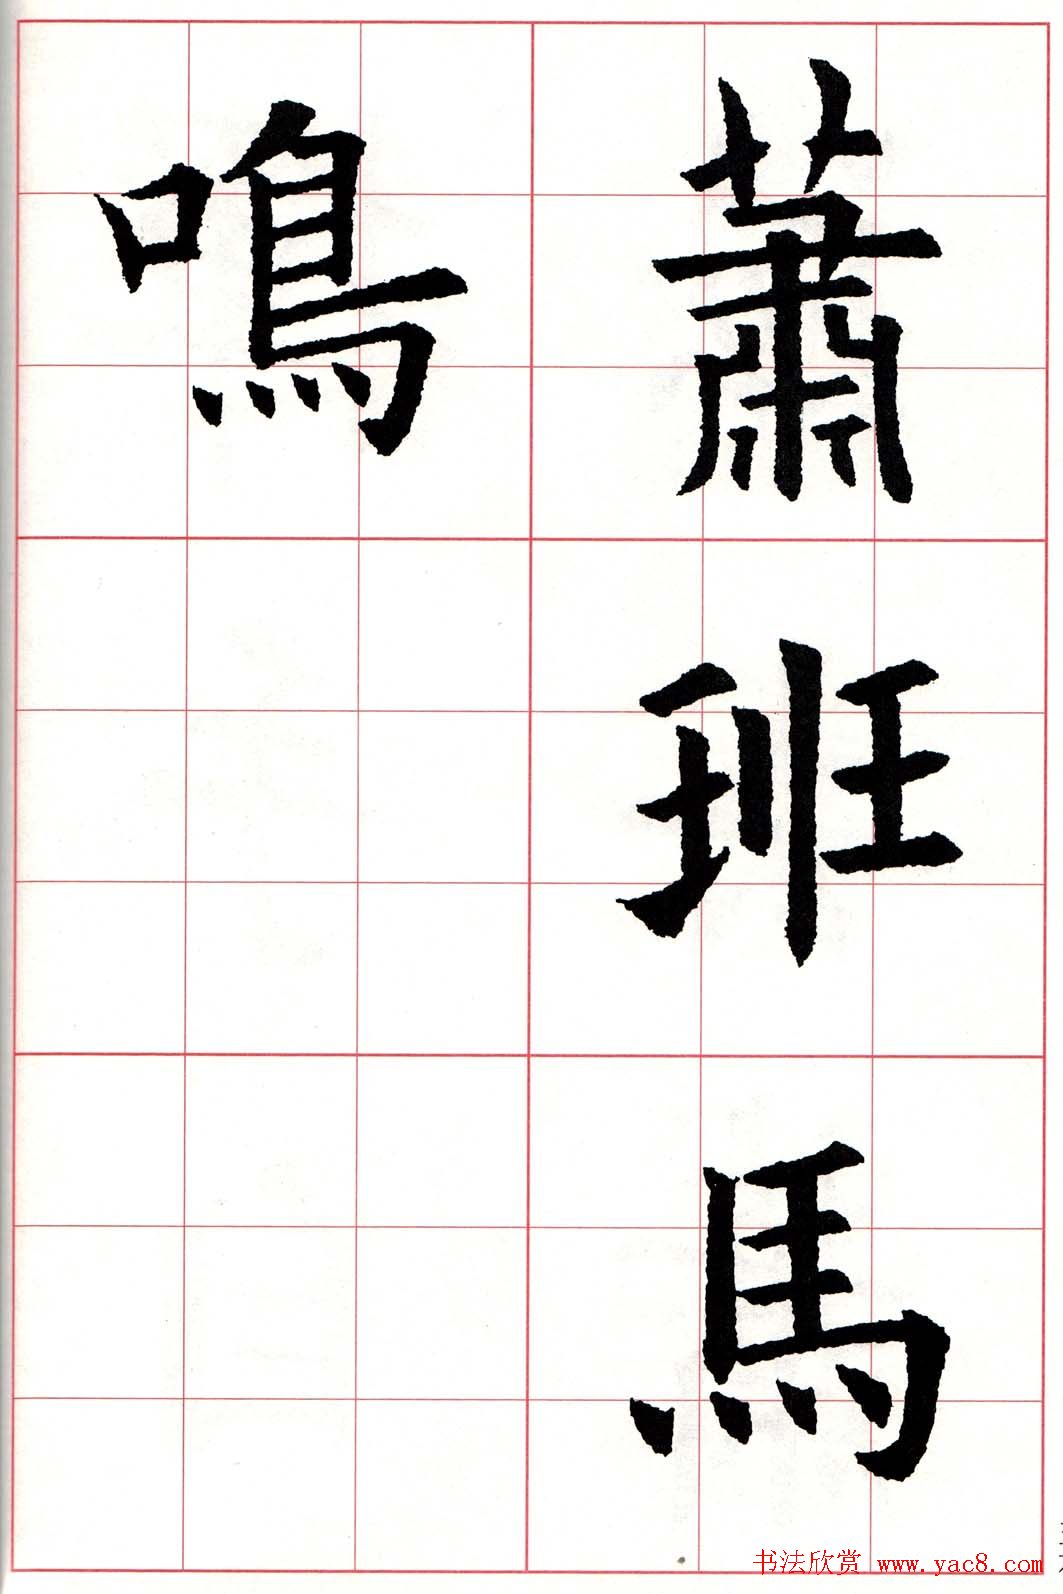 蕭班馬
鳴
书法欣赏 www.yac8.com